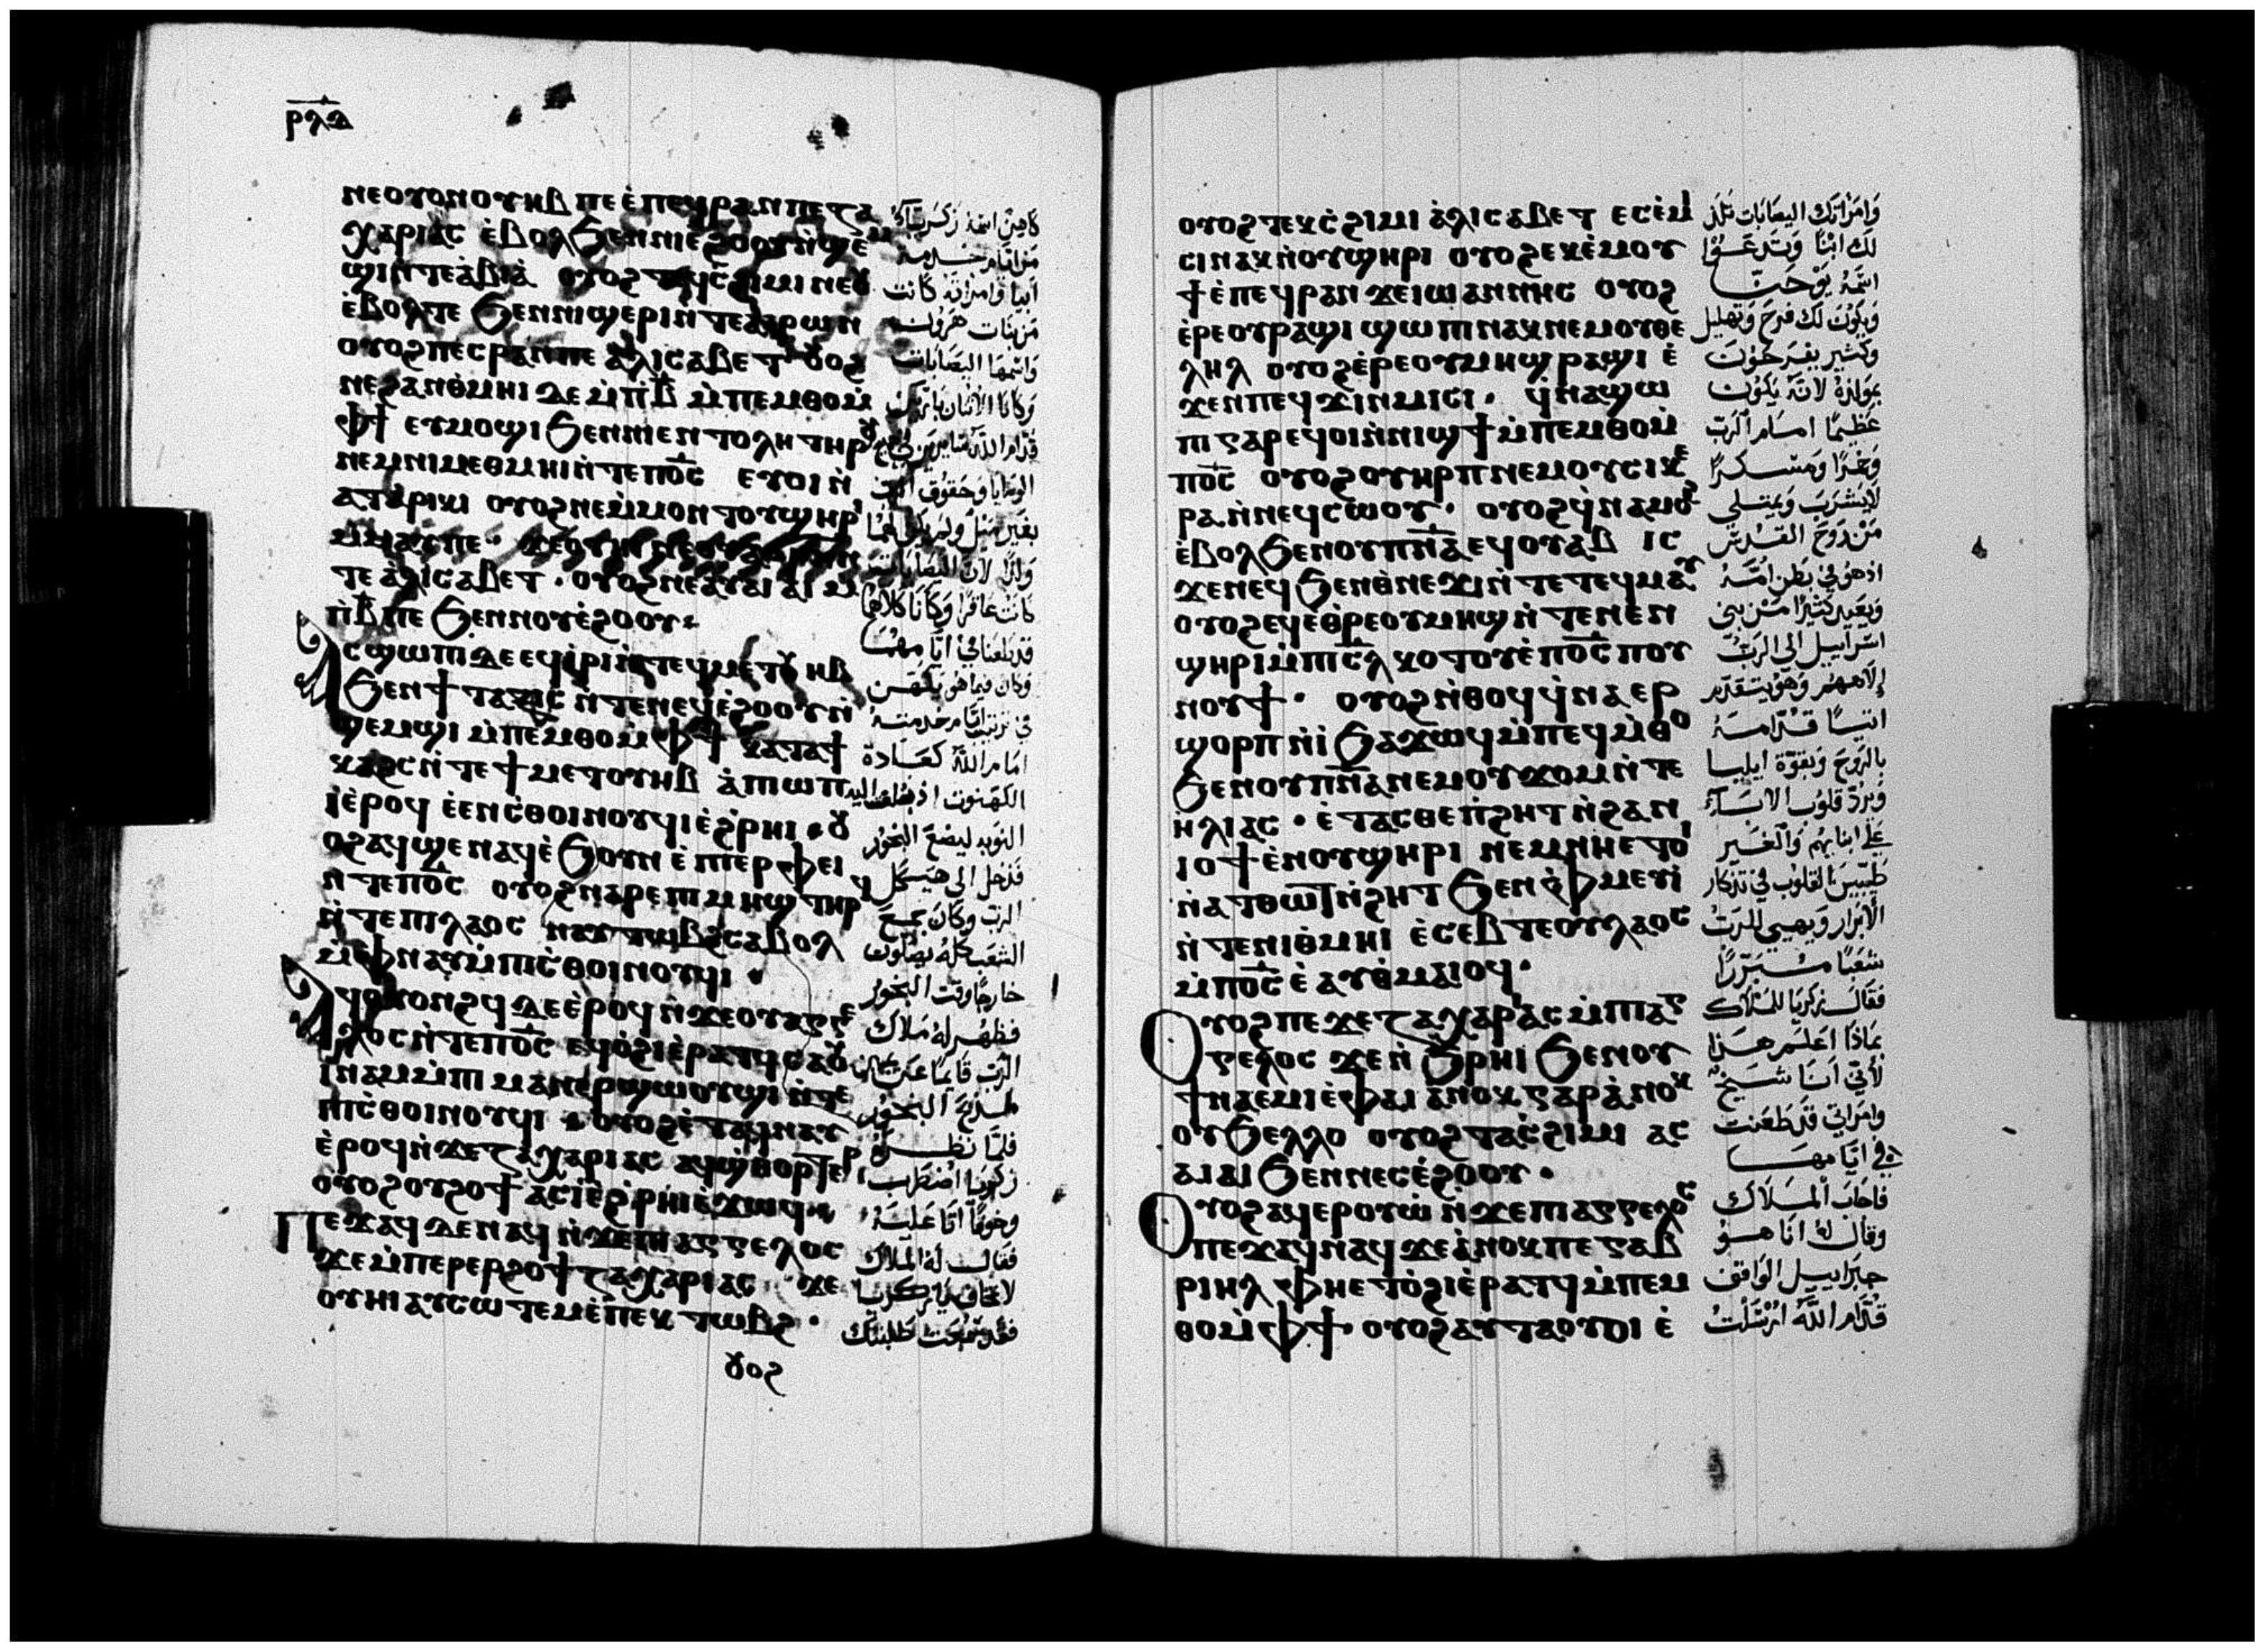 ⲣⲗⲇ
ⲛⲉⲟⲩⲟⲛⲟⲩⲏⲃ ⲡⲉ ⲉ̀ⲡⲉϥⲣⲁⲛ ⲡⲉ ⲍⲁ
ⲭⲁⲣⲓⲁⲥ ⲉ̀ⲃⲟⲗϧⲉⲛⲛⲓⲉϩⲟⲟⲩ ⲛ̀ϣⲉⲙ
ϣⲓⲛⲧⲉⲁ̀ⲃⲓⲁ̀ ⲟⲩⲟϩ ⲧⲉϥⲥ̀ϩⲓⲙⲓ ⲛⲉⲟⲩ
ⲉ̀ⲃⲟⲗⲧⲉ ϧⲉⲛⲛⲓϣⲉⲣⲓⲛⲧⲉⲁ̀ⲁⲣⲱⲛ
ⲟⲩⲟϩⲡⲉⲥⲣⲁⲛⲡⲉ ⲁ̀ⲗⲓⲥⲁⲃⲉⲧ ⲟⲩⲟϩ
ⲛⲉϩⲁⲛⲑⲙⲏⲓ ⲇⲉ ⲙ̀ⲡⲃ̅ ⲙ̀ⲡⲉⲙⲑⲟⲙ̀
ⲫϯ ⲉⲩⲙⲟϣⲓ ϧⲉⲛⲛⲓⲉⲛⲧⲟⲗⲏ ⲧⲏⲣⲟⲩ
ⲛⲉⲙⲛⲓⲙⲉⲑⲙⲏⲓⲛ̀ⲧⲉⲡⲟ̅ⲥ̅ ⲉⲩⲟⲓⲛ̀
ⲁⲧⲁⲣⲓⲕⲓ ⲟⲩⲟϩⲛⲉⲙ̀ⲙⲟⲛⲧⲟⲩϣⲏⲣⲓ
ⲙ̀ⲙⲁⲩⲡⲉ
ⲧⲉ ⲁ̀ⲗⲓⲥⲁⲃⲉⲧ · ⲟⲩⲟϩⲛⲉⲁⲩⲁⲓⲁⲓ ⲙ̀
ⲡ̀ⲃ̅ⲡⲉ ϧⲉⲛⲛⲟⲩⲉ̀ϩⲟⲟⲩ
ⲁⲥϣⲱⲡⲓ ⲇⲉ ⲉϥⲓ̀ⲣⲓⲛ̀ⲧⲉϥⲙⲉⲧⲟⲩⲏⲃ
ϧⲉⲛϯⲧⲁⲝⲓⲥ ⲛ̀ⲧⲉⲛⲉϥⲉ̀ϩⲟⲟⲩⲛ̀
ϣⲉⲙϣⲓ ⲙ̀ⲡⲉⲙⲑⲟⲙ̀ⲫϯ ⲕⲁⲧⲁϯ
ⲕⲁϩⲥⲛ̀ⲧⲉϯⲙⲉⲧⲟⲩⲏⲃ ⲁ̀ⲡⲓⲱⲡ
ⲓ̀ⲉ̀ⲣⲟϥ ⲉ̀ⲉⲛⲥ̀ⲑⲟⲓⲛⲟⲩϥⲓ ⲉ̀ϩ̀ⲣⲏⲓ · ⲟⲩ
ⲟϩⲁϥϣⲉⲛⲁϥⲉ̀ϧⲟⲩⲛ ⲉ̀ⲡⲓⲉⲣⲫⲉⲓ
ⲛ̀ⲧⲉⲡⲟ̅ⲥ̅ ⲟⲩⲟϩⲛⲁⲣⲉⲡⲓⲙⲏϣ ⲧⲏⲣϥ
ⲛ̀ⲧⲉⲡⲓⲗⲁⲟⲥ ⲛⲁⲩⲧⲱⲃϩⲥⲁⲃⲟⲗ
ⲙ̀ⲫⲛⲁⲩⲙ̀ⲡⲓⲥ̀ⲑⲟⲓⲛⲟⲩϥⲓ ·
ⲁϥⲟⲩⲟⲛϩϥ ⲇⲉ ⲉ̀ⲣⲟϥ ⲛ̀ϫⲉⲟⲩⲁⲅⲅⲉ
ⲗⲟⲥ ⲛ̀ⲧⲉⲡⲟ̅ⲥ̅ ⲉϥⲟ̀ϩⲓⲉ̀ⲣⲁⲧϥ ⲥⲁⲟⲩ
ⲓⲛⲁⲙⲙ̀ⲡⲓⲙⲁⲛⲉⲣϣⲱⲟⲩϣⲓ ⲛ̀ⲧⲉ
ⲡⲓⲥ̀ⲑⲟⲓⲛⲟⲩϥⲓ · ⲟⲩⲟϩⲉ̀ⲧⲁϥⲛⲁⲩ
ⲉ̀ⲣⲟϥⲛ̀ϫⲉⲍⲁⲭⲁⲣⲓⲁⲥ ⲁϥϣ̀ⲑⲟⲣⲧⲉⲣ
ⲟⲩⲟϩⲟⲩϩⲟϯ ⲁⲥⲓ̀ⲉ̀ϩ̀ⲣⲏⲓⲉ̀ϫⲱϥ
ⲡⲉϫⲁϥ ⲇⲉ ⲛⲁϥ ⲛ̀ϫⲉⲡⲓⲁⲅⲅⲉⲗⲟⲥ
ϫⲉⲙ̀ⲡⲉⲣⲉⲣϩⲟϯ ⲍⲁⲭⲁⲣⲓⲁⲥ ϫⲉ
ⲟⲩⲏⲓ ⲁⲩⲥⲱⲧⲉⲙⲉ̀ⲡⲉⲕⲧⲱⲃϩ ·
ⲟⲩⲟϩ
كاهن اسمه زكريا
من ايام خدمة
ابيا وامراته كانت
من بنات هرون
واسمها اليصابات
وكانا الاثنان بارين
قدام الله سايرين في جميع
الوصايا وحقوق الرب
بغير مثل ولم يكن لهما
ولدًا لان اليصابات
كانت عاقرا وكانا كلاهما
قد طعنا في ايامهما
وكان فيما هو يكهن
في ترتيب ايام خدمته
امام الله كعادة
الكهنوت اذ بلغت اليه
النوبه ليضع البخور
فدخل الى هيكل
الرب وكان جميع
الشعب كله يصلون
خارجًا وقت البخور
فظهر له ملاك
الرب قايمًا عن يمين
مذبح البخور
فلما نظره
زكريا اضطرب
وخوفًا اتا عليه
فقال له الملاك
لا تخاف يا زكريا
فقد سمعت طلبتك
ⲟⲩⲟϩ ⲧⲉⲕⲥ̀ϩⲓⲙⲓ ⲁ̀ⲗⲓⲥⲁⲃⲉⲧ ⲉⲥⲉ̀ⲙⲓ
ⲥⲓⲛⲁⲕⲛ̀ⲟⲩϣⲏⲣⲓ ⲟⲩⲟϩⲉⲕⲉ̀ⲙⲟⲩ
ϯⲉ̀ⲡⲉϥⲣⲁⲛ ϫⲉⲓⲱⲁⲛⲛⲏⲥ ⲟⲩⲟϩ
ⲉ̀ⲣⲉⲟⲩⲣⲁϣⲓ ϣⲱⲡⲓⲛⲁⲕ ⲛⲉⲙⲟⲩⲑⲉ
ⲗⲏⲗ ⲟⲩⲟϩⲉ̀ⲣⲉⲟⲩⲙⲏϣ ⲣⲁϣⲓ ⲉ̀
ϫⲉⲛⲡⲉϥϫⲓⲛⲙⲓⲥⲓ · ϥ̀ⲛⲁϣⲱ
ⲡⲓⲅⲁⲣⲉϥⲟⲓⲛ̀ⲛⲓϣϯⲙ̀ⲡⲉⲙⲑⲟⲙ̀
ⲡⲟ̅ⲥ̅ ⲟⲩⲟϩⲟⲩⲏⲣⲡ ⲛⲉⲙⲟⲩⲥⲓⲕⲉ
ⲣⲁⲛ̀ⲛⲉϥⲥⲱⲟⲩ · ⲟⲩⲟϩϥ̀ⲛⲁⲙⲟϩ
ⲉ̀ⲃⲟⲗϧⲉⲛⲟⲩⲡⲛ̅ⲁ̅ ⲉϥⲟⲩⲁⲃ ⲓⲥ
ϫⲉⲛⲉϥϧⲉⲛⲑⲛⲉϫⲓⲛ̀ⲧⲉⲧⲉϥⲙⲁⲩ
ⲟⲩⲟϩⲉϥⲉⲑ̀ⲣⲉⲟⲩⲙⲏϣ ⲛ̀ⲧⲉⲛⲉⲛ
ϣⲏⲣⲓⲙ̀ⲡⲓⲥ̅ⲗ̅ ⲕⲟⲧⲟⲩⲉ̀ⲡⲟ̅ⲥ̅ ⲡⲟⲩ
ⲛⲟⲩϯ · ⲟⲩⲟϩⲛ̀ⲑⲟϥϥ̀ⲛⲁⲉⲣ
ϣⲟⲣⲡⲛ̀ⲓ̀ ϧⲁϫⲱϥⲙ̀ⲡⲉϥⲙ̀ⲑⲟ
ϧⲉⲛⲟⲩⲡⲛ̅ⲁ̅ ⲛⲉⲙⲟⲩϫⲟⲙⲛ̀ⲧⲉ
ⲏ̀ⲗⲓⲁⲥ · ⲉ̀ⲧⲁⲥⲑⲉⲡ̀ϩⲏⲧ ⲛ̀ϩⲁⲛ
ⲓⲟϯⲉ̀ⲛⲟⲩϣⲏⲣⲓ ⲛⲉⲙⲛⲏⲉⲧⲟⲓ
ⲛ̀ⲁⲧⲑⲱⲧⲛ̀ϩⲏⲧ ϧⲉⲛⲫ̀ⲙⲉⲩⲓ
ⲛ̀ⲧⲉⲛⲓⲑⲙⲏⲓ ⲉ̀ⲥⲉⲃⲧⲉⲟⲩⲗⲁⲟⲥ
ⲙ̀ⲡⲟ̅ⲥ̅ ⲉ̀ⲁⲩⲑⲙⲁⲓⲟϥ ·
ⲟⲩⲟϩ ⲡⲉϫⲉⲍⲁⲭⲁⲣⲓⲁⲥ ⲙ̀ⲡⲓⲁⲅ
ⲅⲉⲗⲟⲥ ϫⲉⲛ̀ϩ̀ⲣⲏⲓ ϧⲉⲛⲟⲩ
ϯⲛⲁⲉⲙⲓⲉ̀ⲫⲁⲓ ⲁⲛⲟⲕ ⲅⲁⲣⲁ̀ⲛⲟⲕ
ⲟⲩϧⲉⲗⲗⲟ ⲟⲩⲟϩⲧⲁⲥ̀ϩⲓⲙⲓ ⲁⲥ
ⲁⲓⲁⲓ ϧⲉⲛⲛⲉⲥⲉ̀ϩⲟⲟⲩ ·
ⲟⲩⲟϩ ⲁϥⲉⲣⲟⲩⲱ̀ ⲛ̀ϫⲉⲡⲓⲁⲅⲅⲉⲗⲟⲥ
ⲡⲉϫⲁϥⲛⲁϥ ϫⲉⲁ̀ⲛⲟⲕⲡⲉ ⲅⲁⲃ
ⲣⲓⲏⲗ ⲫⲏⲉⲧⲟ̀ϩⲓⲉ̀ⲣⲁⲧϥⲙ̀ⲡⲉⲙ
ⲑⲟⲙ̀ⲫϯ · ⲟⲩⲟϩⲁⲩⲧⲁⲟⲩⲟⲓ ⲉ̀
وامراتك اليصابات تلد
لك ابنًا وتدعوا
اسمه يوحنا
ويكون لك فرح وتهليل
وكثير يفرحون
بمولده لانه يكون
عظيمًا امام الرب
وخمرًا ومسكرًا
لا يشرب ويمتلي
من روح القدس
اذ هو في بطن امه
ويعيد كثيرًا من بني
اسراييل الى الرب
إلاههم وهو يتقدم
اتيًا قدامه
بالروح وبقوة ايليا
ويرد قلوب الاباء
على ابنايهم والغير
طيبين القلوب في تذكار
الابرار ويهيي للرب
شعبًا مبررًا
فقال زكريا للملاك
بماذا اعلم هذا
لأني أنا شيخ
وامراتي قد طعنت
في ايامها
فاجاب الملاك
وقال له انا هو
جبراييل الواقف
قدام الله ارسلت